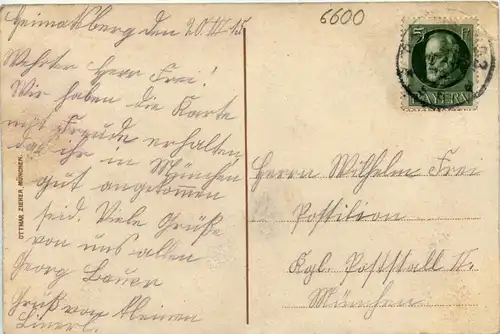 Heimatsberg den 20.III.15
6600
Werter Herr Frei!
Wir haben die Karte
mit Freude erhalten,
daß ihr in München
gut angekommen
seid. Viele Grüße
von uns allen
Georg Bauer
Gruß von kleinen
5 PF
BAYERN
OTTMAR ZIEHER, MÜNCHEN.
Herrn Wilhelm Frei
Postillion
Kgl. Poststall II.
München